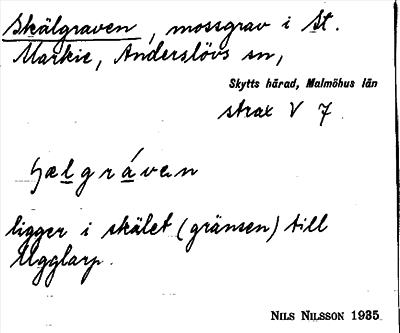 Skälgraven, mossgrav i St.
Markie, Anderslövs sn,
Skytts härad, Malmöhus län
strax V 7.
ligger i skälet (gränsen) till
Ugglarp.
NILS NILSSON 1935